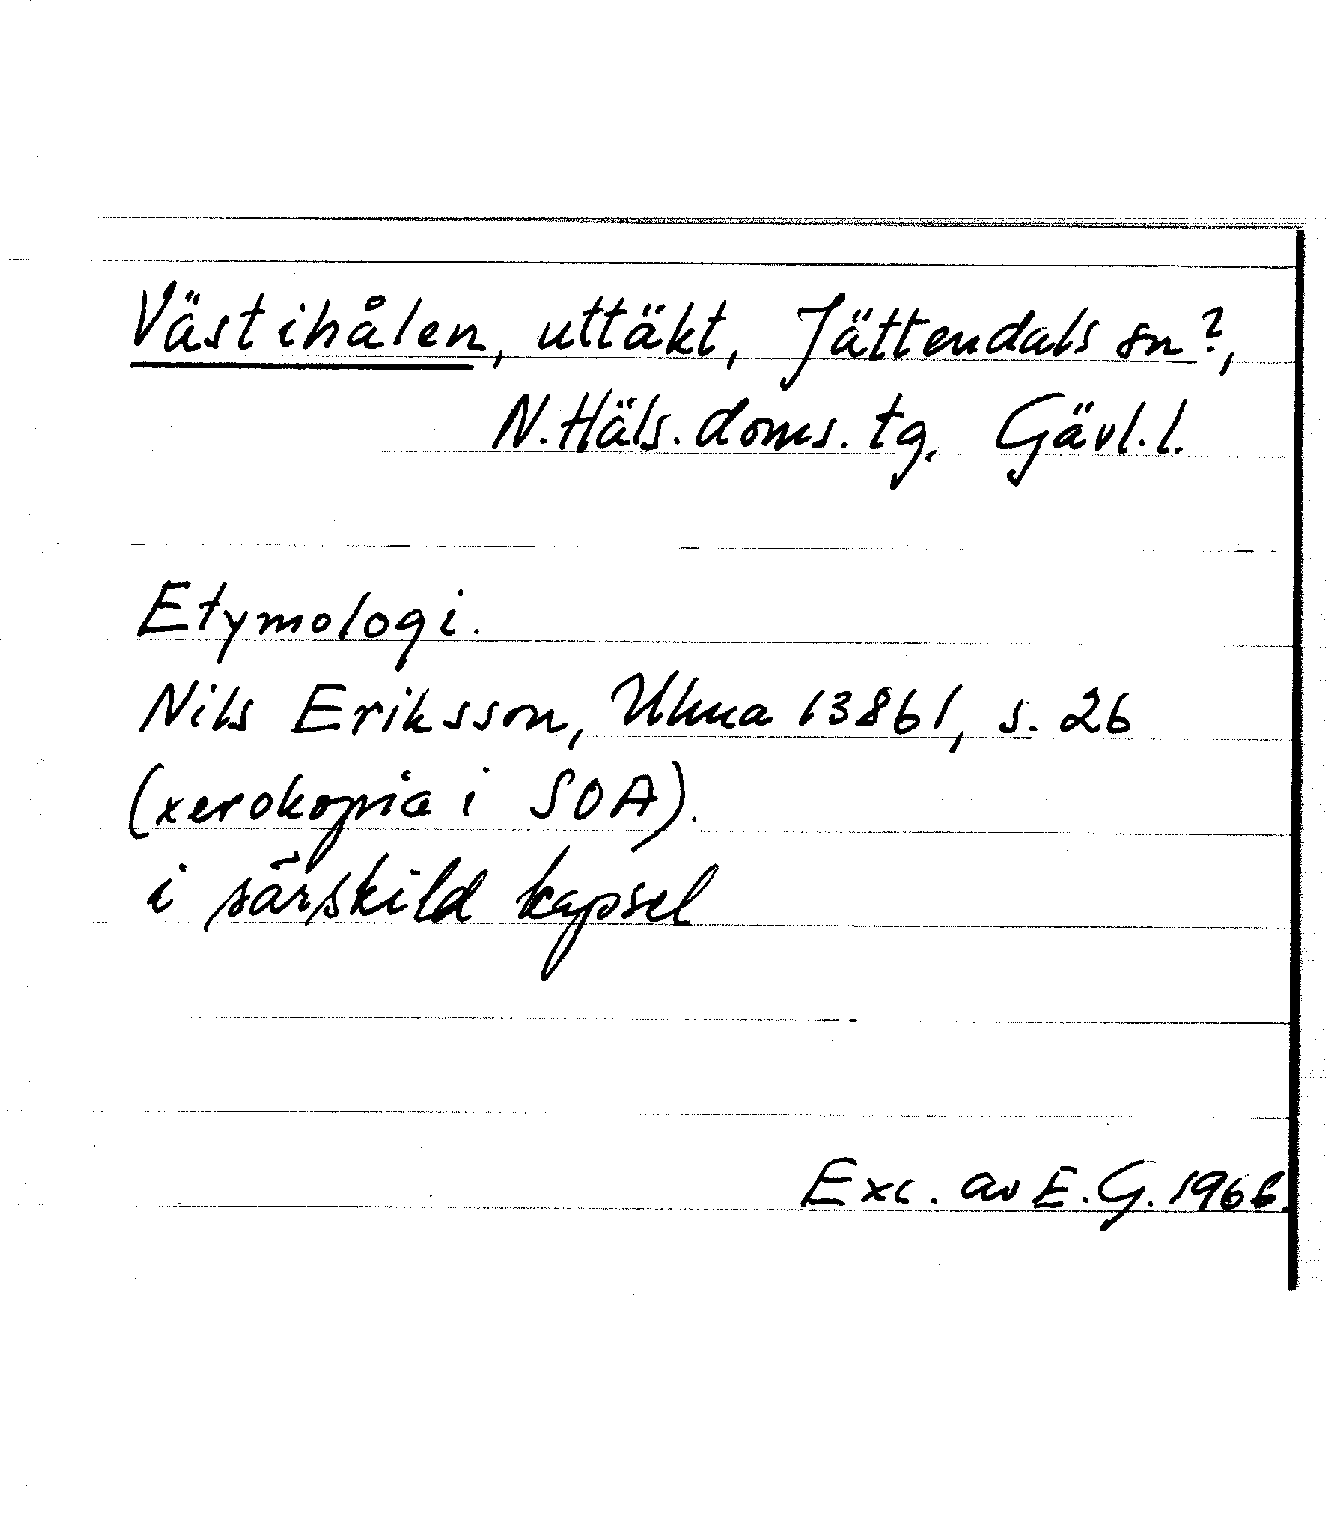 Västihålen, uttäkt, Jättendals sn?,
N.Häls.doms.tg. Gävl.l.
Etymologi.
Nils Eriksson, Ulma 13861, s. 26
(xerokopia i SOA).
i särskild kapsel
Exc. av E.G. 1966.